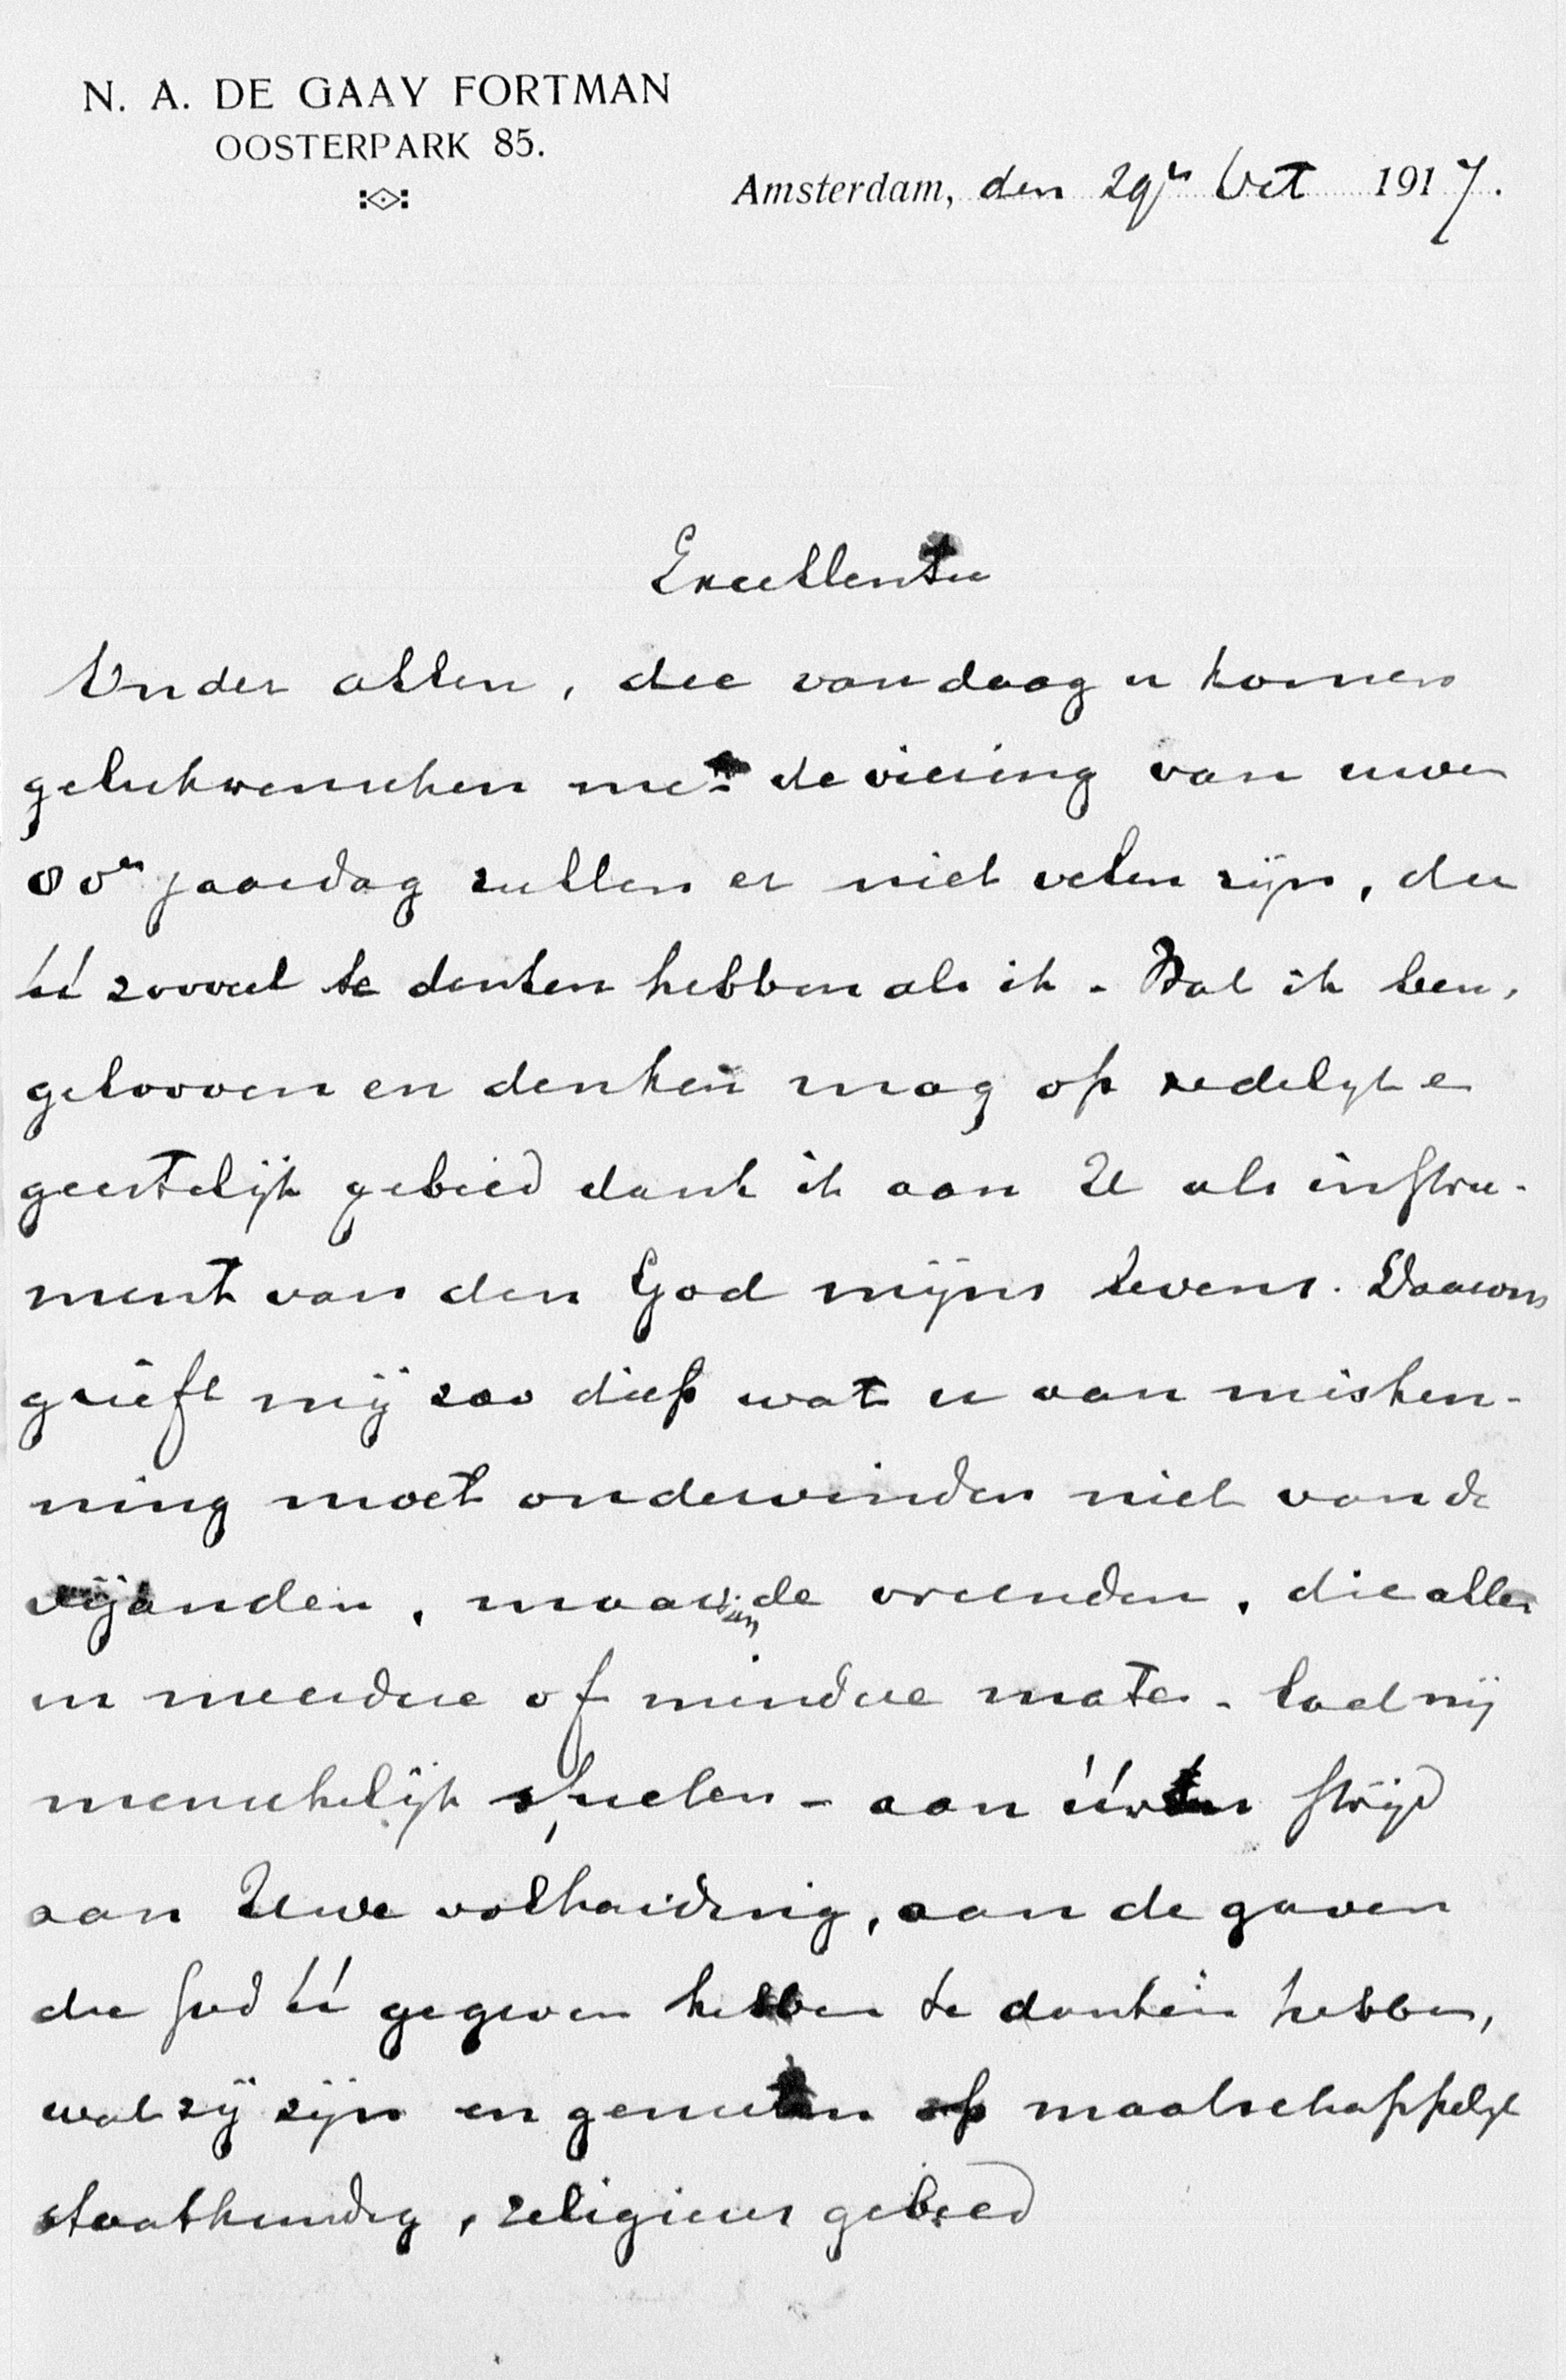 N. A. DE GAAY FORTMAN
OOSTERPARK 85.
Amsterdam, den 29n Oct 1917.
Excellentie
Onder allen, die vandaag u komen
gelukwenschen met de viering van uwen
80en jaardag zullen er niet velen zijn, die
ú zooveel te danken hebben als ik. Wat ik ben,
gelooven en denken mag op zedelijk en
geestelijk gebied dank ik aan U als instru-
ment van den God mijns levens. Daarom
grieft mij zoo diep wat u aan misken-
ning moet ondervinden niet van de
vijanden, maar van de vrienden, die allen
in meerdere of mindere mate - laat mij
menschelijk spreken - aan úwen strijd
aan Uwe volharding, aan de gaven
die God ú gegeven hebben te danken hebben,
wat zij zijn en genieten op maatschappelijk
staatkundig, religieus gebied